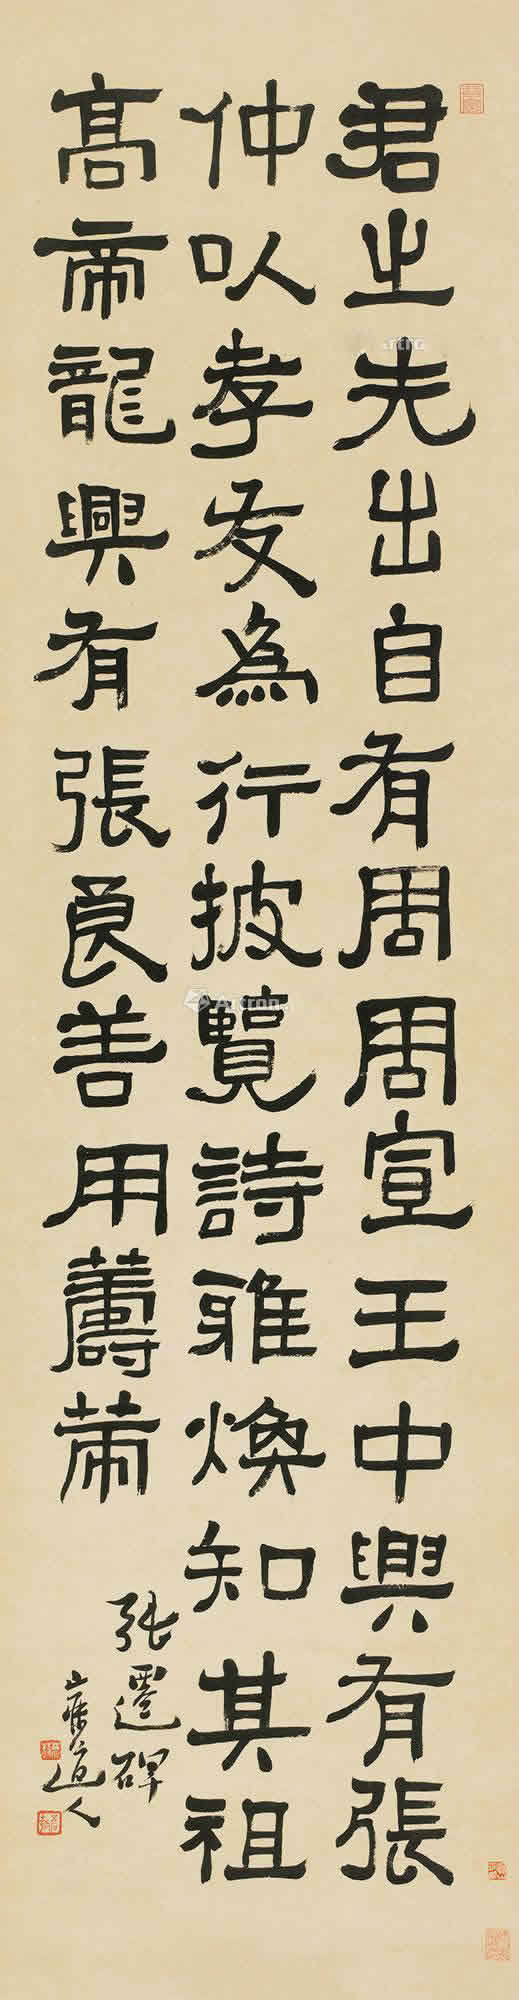 君之先出自有周周宣王中興有張
仲以孝友為行披覽詩雅煥知其祖
高帝龍興有張良善用籌策
張遷碑
道人